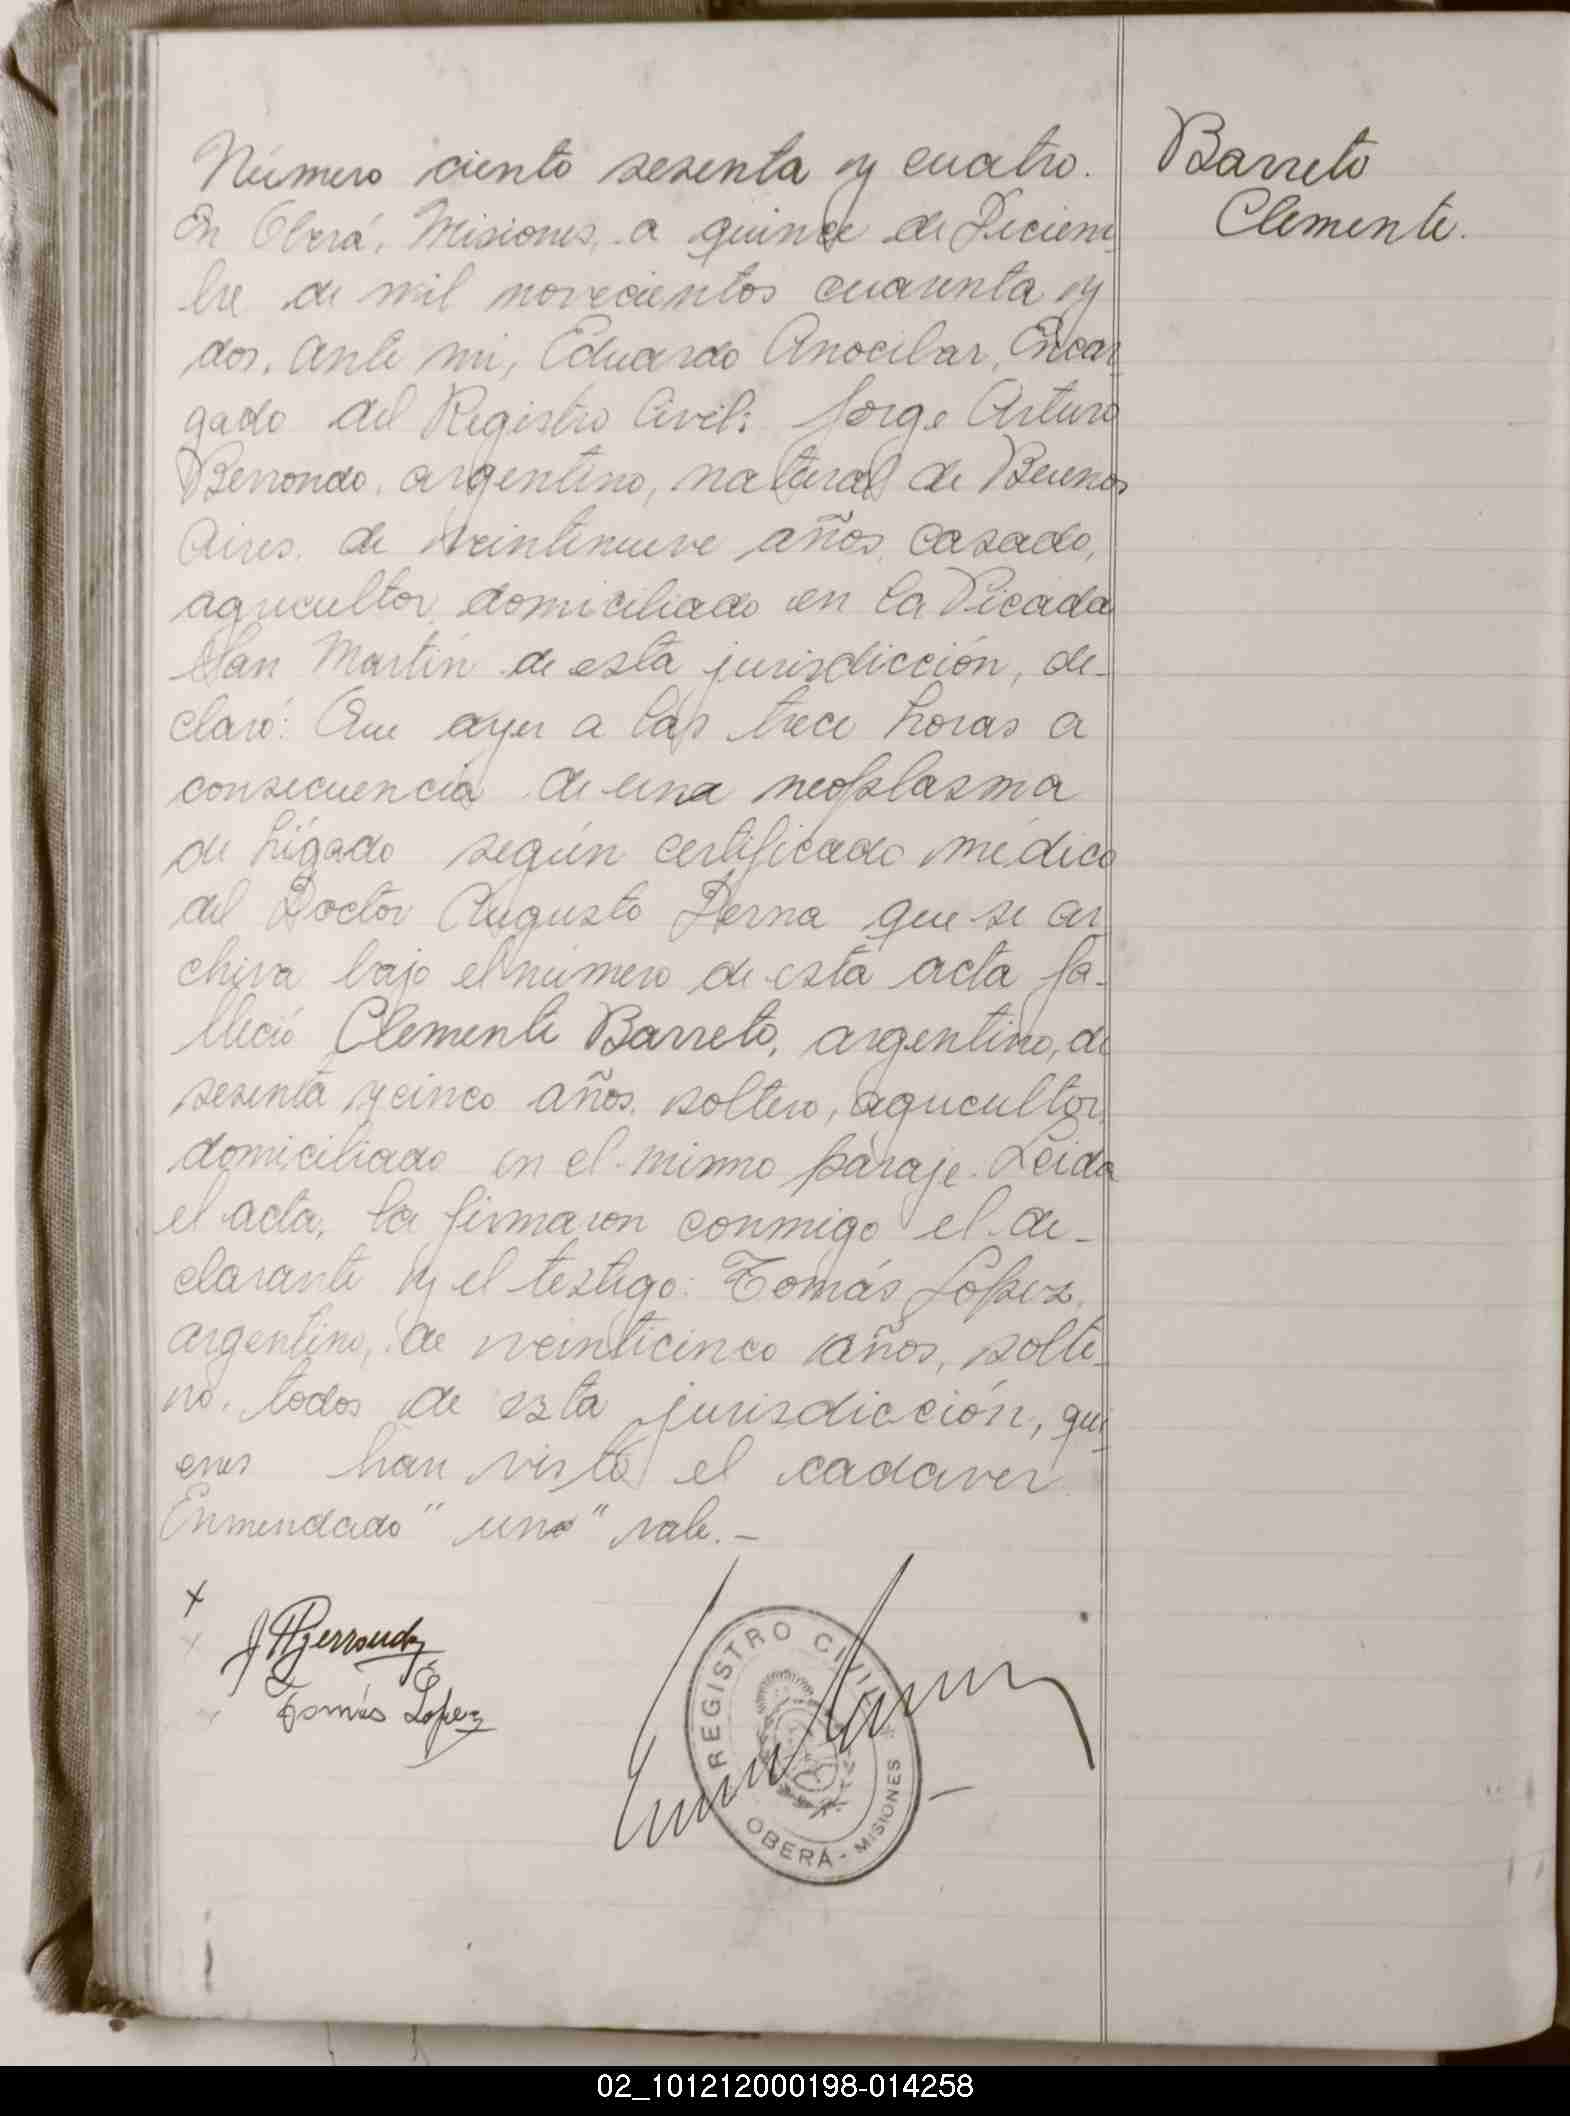 Número ciento sesenta y cuatro.
Barreto
Clemente.
En Oberá, Misiones, a quince de Diciem
bre de mil novecientos cuarenta y
dos, ante mi, Eduardo Anocibar, Encar
gado del Registro Civil: Jorge Arturo
Berrondo, argentino, natural de Buenos
Aires, de veintinueve años, casado,
agricultor, domiciliado en la Picada
San Martín de esta jurisdicción, de-
claró: Que ayer a las trece horas a
consecuencia de una neoplasma
de hígado según certificado médico
del Doctor Augusto Derna que se ar
chiva bajo el número de esta acta fa-
lleció Clemente Barreto, argentino, de
sesenta y cinco años, soltero, agricultor,
domiciliado en el mismo paraje. Leida
el acta, la firmaron conmigo el de-
clarante y el testigo: Tomás López,
argentino, de veinticinco años, solte-
ro, todos de esta jurisdicción, qui-
enes han visto el cadaver.
Enmendado "una" vale.-
J A Berrondo
Tomás López
REGISTRO CIVIL
OBERÁ - MISIONES
02_101212000198-014258